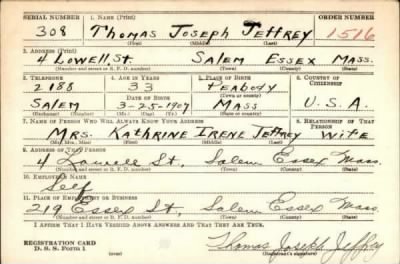 SERIAL NUMBER 1. NAME (Print) ORDER NUMBER
308 Thomas Joseph Jeffrey 1516
(First) (Middle) (Last)
2. ADDRESS (Print)
4 Lowell St Salem Essex Mass.
(Number and street or R. F. D. number) (Town) (County) (State)
3. TELEPHONE 4. AGE IN YEARS 5. PLACE OF BIRTH 6. COUNTRY OF CITIZENSHIP
2188 33 Peabody
DATE OF BIRTH (Town or county)
Salem 3-25-1907 Mass U.S.A.
(Exchange) (Number) (Mo.) (Day) (Yr.) (State or country)
7. NAME OF PERSON WHO WILL ALWAYS KNOW YOUR ADDRESS 8. RELATIONSHIP OF THAT PERSON
Mrs. Kathrine Irene Jeffrey Wife
(Mr., Mrs., Miss) (First) (Middle) (Last)
9. ADDRESS OF THAT PERSON
4 Lowell St, Salem Essex Mass.
(Number and street or R. F. D. number) (Town) (County) (State)
10. EMPLOYER'S NAME
Self
11. PLACE OF EMPLOYMENT OR BUSINESS
219 Essex St, Salem Essex Mass
(Number and street or R. F. D. number) (Town) (County) (State)
I AFFIRM THAT I HAVE VERIFIED ABOVE ANSWERS AND THAT THEY ARE TRUE.
REGISTRATION CARD
D. S. S. Form 1 (over) Thomas Joseph Jeffrey
(Registrant's signature)